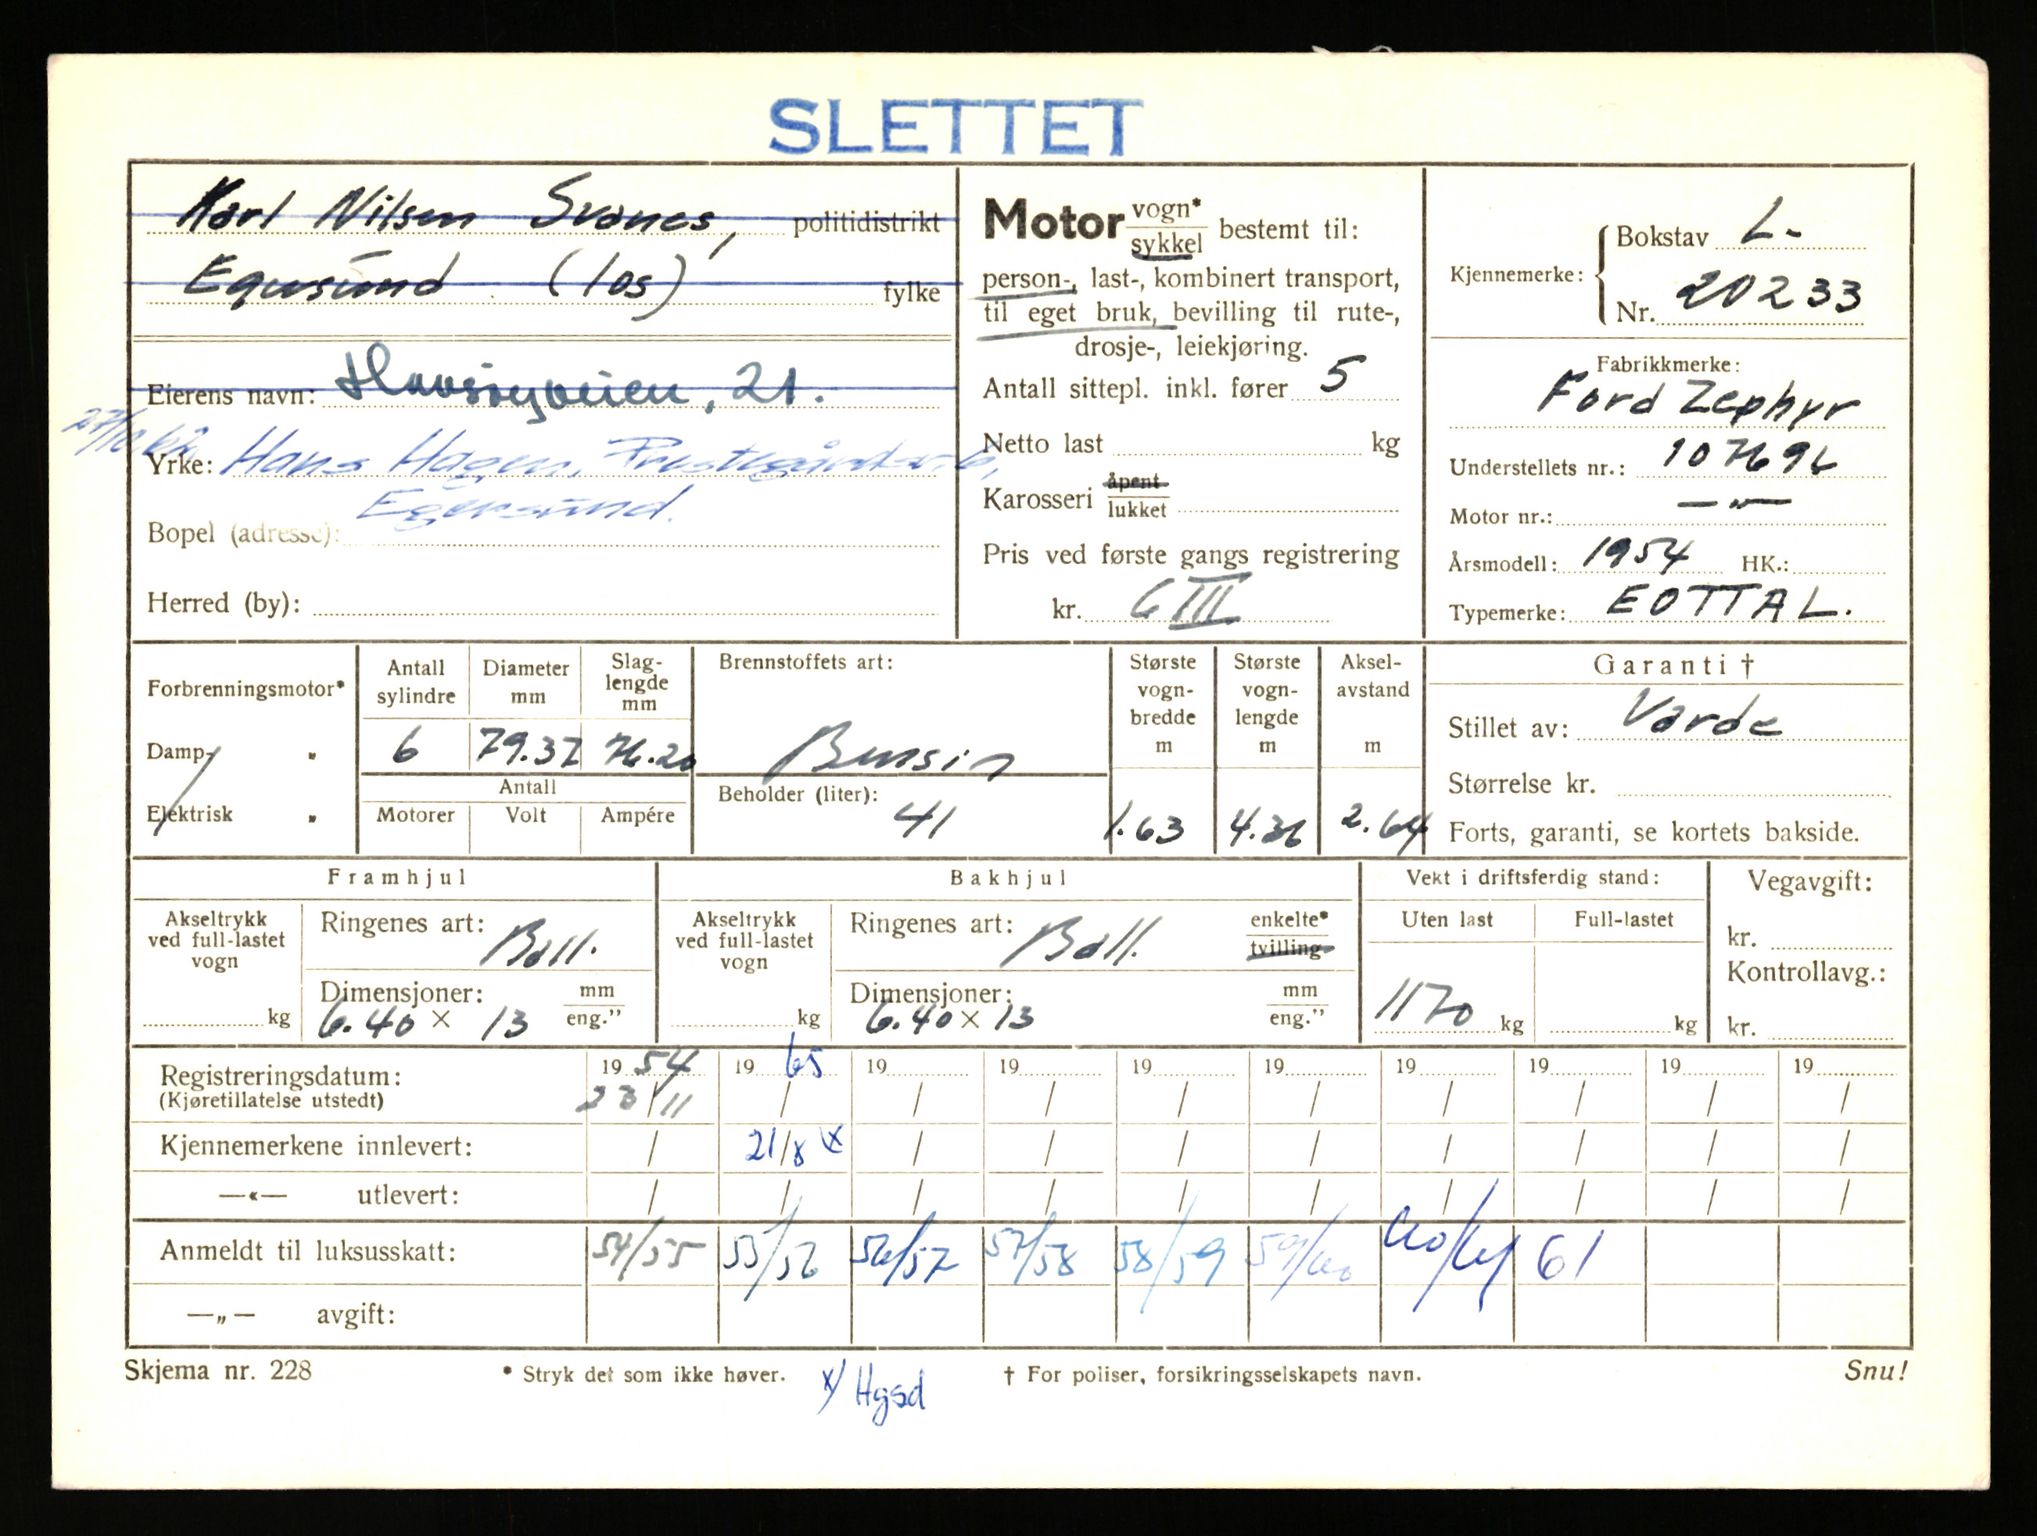 SLETTET
Karl Nilsen Svanes, politidistrikt
Egersund (los) fylke
Eierens navn: Havsøyveien, 21.
27/10 62
Yrke: Hans Hagen, Prestegårdsv. 6,
Egersund.
Bopel (adresse):
Herred (by):
Motor vogn* sykkel bestemt til:
person-, last-, kombinert transport,
til eget bruk, bevilling til rute-,
drosje-, leiekjøring.
Antall sittepl. inkl. fører 5
Netto last kg
Karosseri åpent lukket
Pris ved første gangs registrering
kr. G III
Kjennemerke: Bokstav L-
Nr. 20233
Fabrikkmerke:
Ford Zephyr
Understellets nr.: 107696
Motor nr.: — „ —
Årsmodell: 1954 HK.:
Typemerke: EOTTAL.
Forbrenningsmotor*
Damp- "
Elektrisk "
Antall sylindre 6
Diameter mm 79.37
Slag-lengde mm 76.20
Antall
Motorer Volt Ampére
Brennstoffets art:
Bensin
Beholder (liter):
41
Største vogn-bredde m 1.63
Største vogn-lengde m 4.36
Aksel-avstand m 2.64
Garanti †
Stillet av: Varde
Størrelse kr.
Forts, garanti, se kortets bakside.
Framhjul
Akseltrykk ved full-lastet vogn
kg
Ringenes art: Ball.
Dimensjoner: mm
6.40 x 13 eng."
Bakhjul
Akseltrykk ved full-lastet vogn
kg
Ringenes art: Ball. enkelte* tvilling
Dimensjoner: mm
6.40 x 13 eng."
Vekt i driftsferdig stand:
Uten last Full-lastet
1170 kg kg
Vegavgift:
kr.
Kontrollavg.:
kr.
Registreringsdatum: 19 54 19 65 19 19 19 19 19 19 19 19
(Kjøretillatelse utstedt) 23/11 / / / / / / / / /
Kjennemerkene innlevert: / 21/8 x / / / / / / / /
—«— utlevert: / / / / / / / / / /
Anmeldt til luksusskatt: 54/55 55/56 56/57 57/58 58/59 59/60 60/61 61
—„— avgift:
Skjema nr. 228 * Stryk det som ikke høver. † For poliser, forsikringsselskapets navn. Snu!
x/ Hgsd